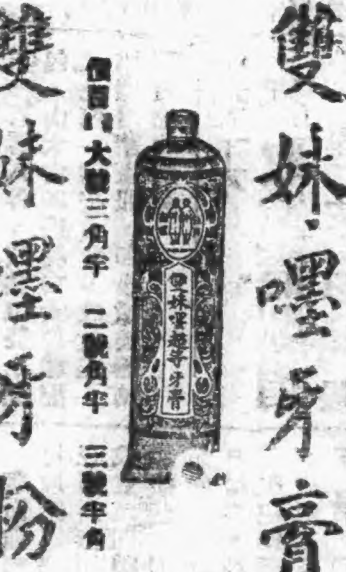 雙妹嚜牙膏
妹嚜超等牙膏
價目 大號三角半 二號角半 三號半角
雙妹嚜牙粉